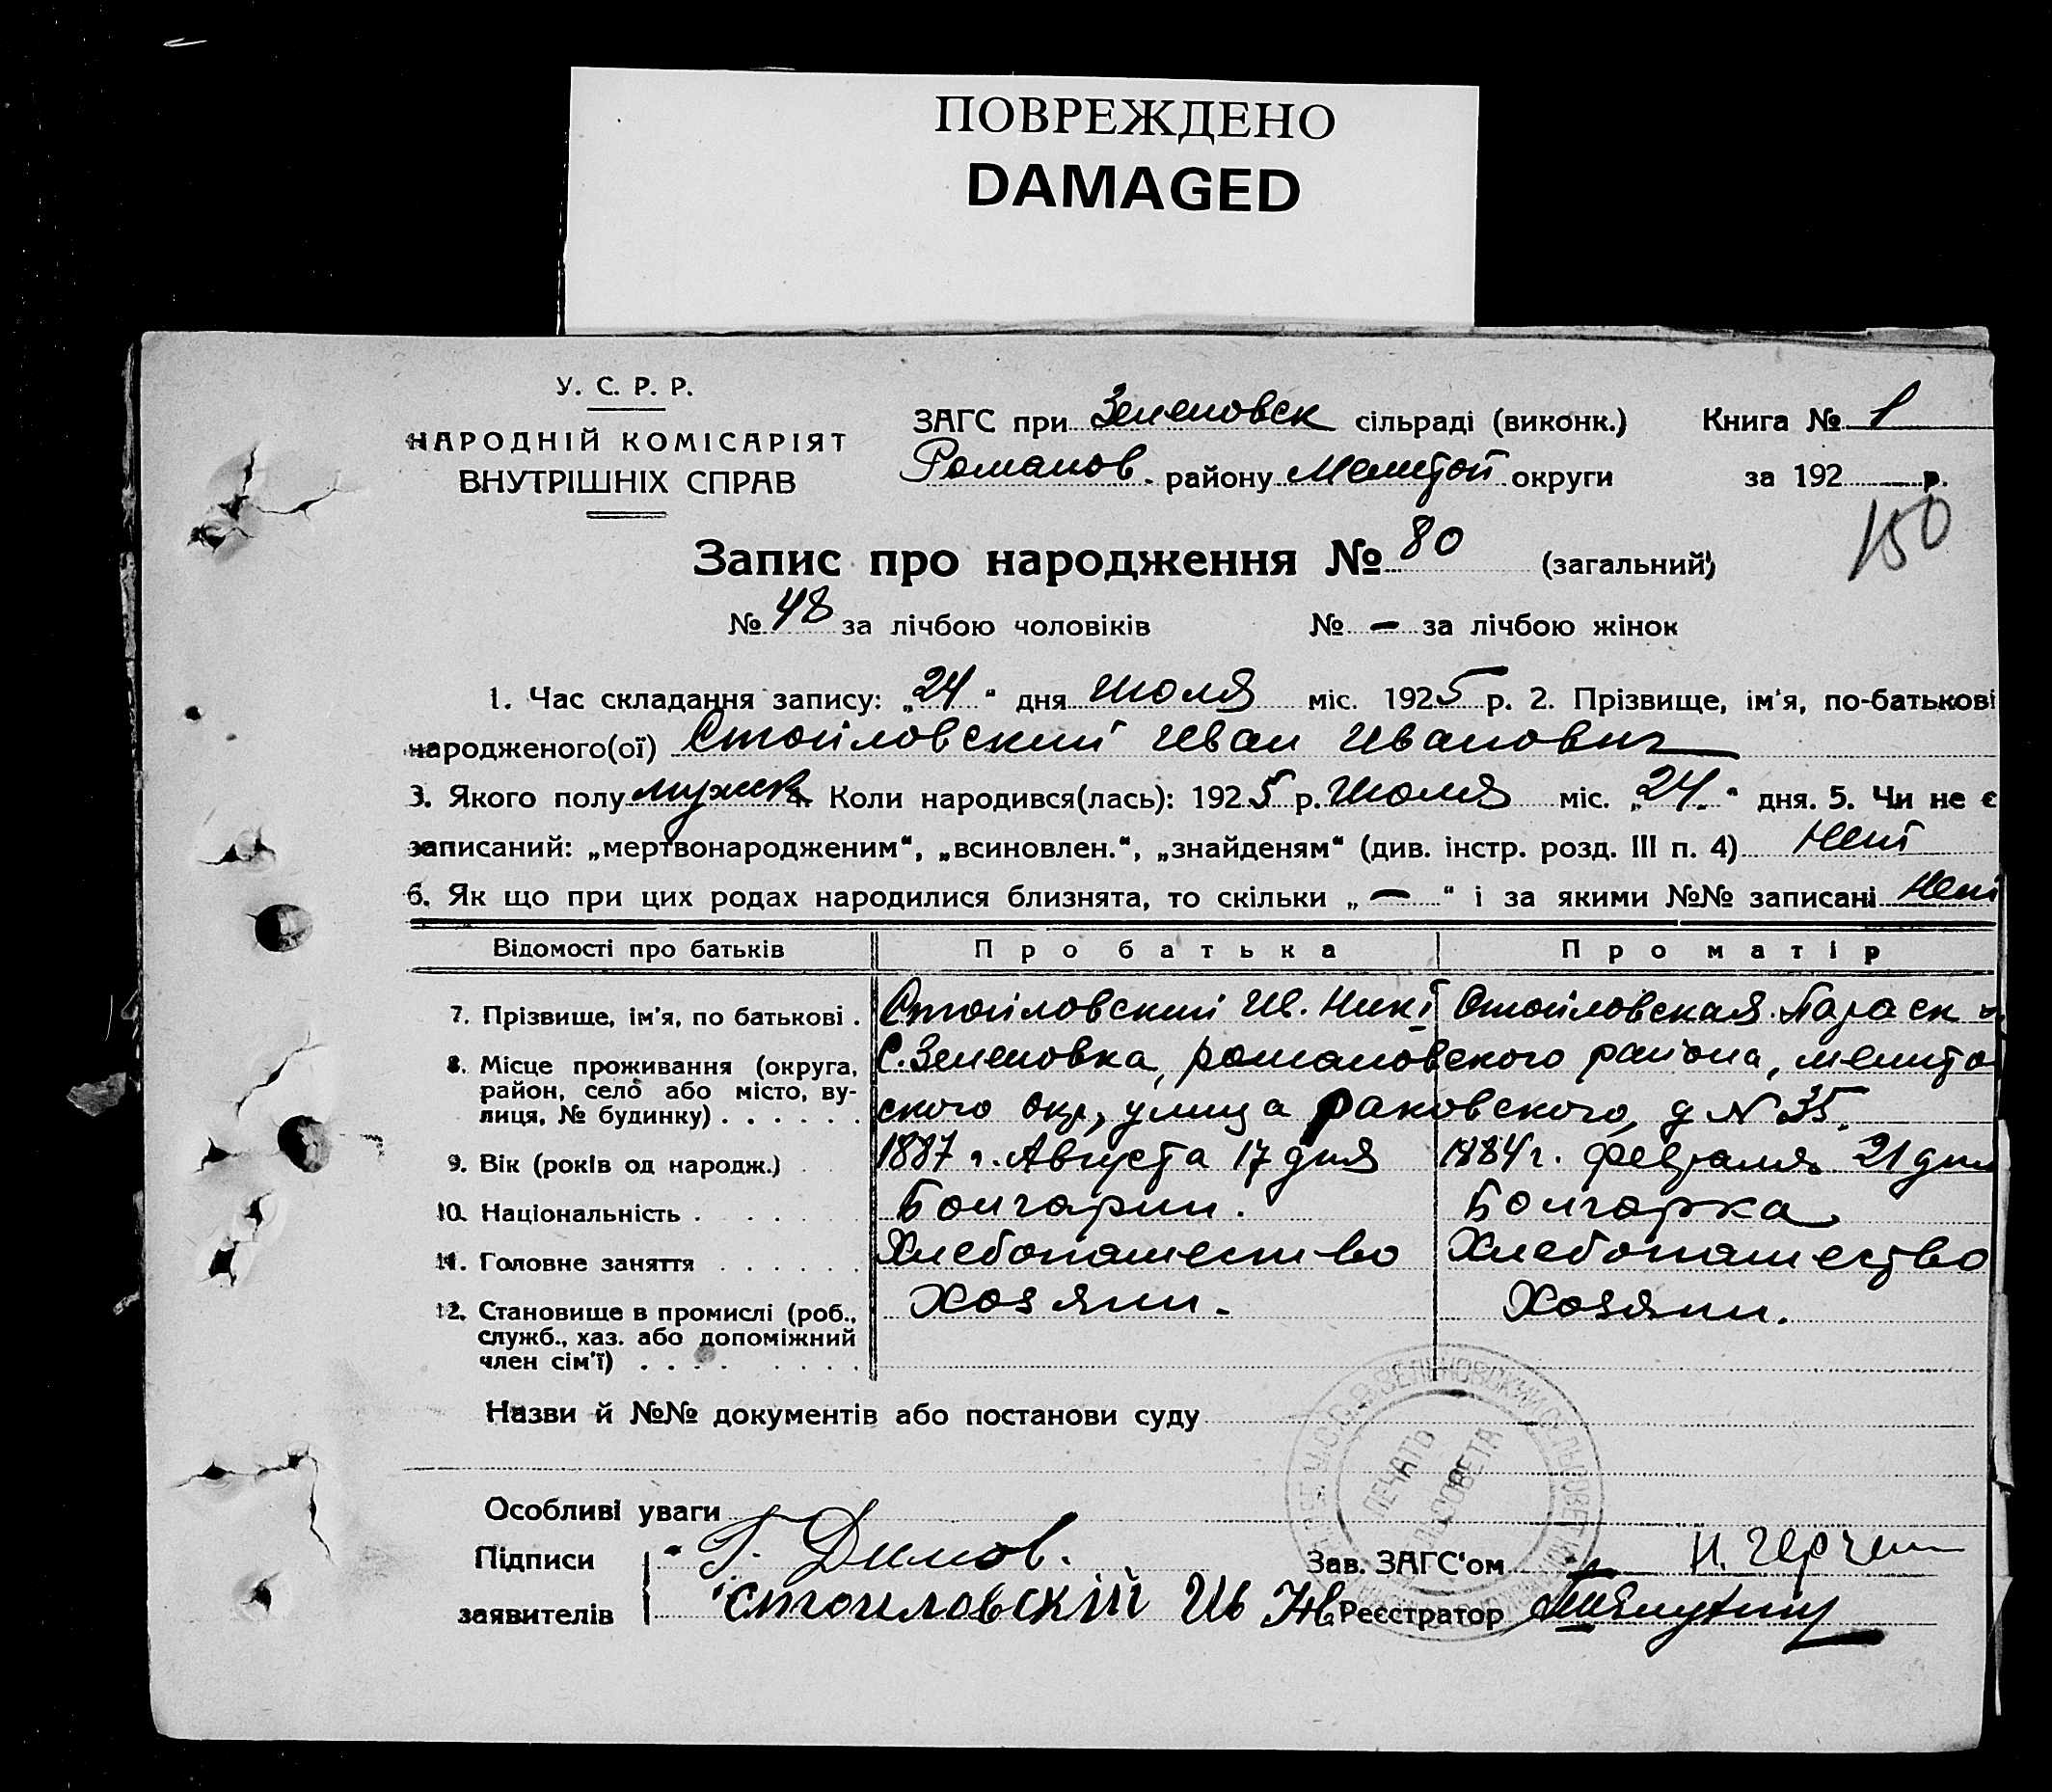 ПОВРЕЖДЕНО
DAMAGED
У. С. Р. Р.
НАРОДНІЙ КОМІСАРІЯТ
ВНУТРІШНІХ СПРАВ
ЗАГС при Зеленовск сільраді (виконк.) Книга № 1
Романов. району Мелитоп округи за 192 р.
150
Запис про народження № 80 (загальний)
№ 48 за лічбою чоловіків № — за лічбою жінок
1. Час складання запису: „24“ дня Июля міс. 1925 р. 2. Прізвище, ім'я, по-батькові
народженого(ої) Стоиловский Иван Иванович
3. Якого полу мужск. Коли народився(лась): 1925 р. Июля міс. „24“ дня. 5. Чи не є
записаний: „мертвонародженим“, „всиновлен.“, „знайденям“ (див. інстр. розд. III п. 4) Нет
6. Як що при цих родах народилися близнята, то скільки „—“ і за якими №№ записані Нет
Відомості про батьків Про батька Про матір
7. Прізвище, ім'я, по батькові . Стоиловский Ив. Никі Стоиловская Параск
8. Місце проживання (округа, С. Зеленовка, романовского района, мелито
район, село або місто, ву-
лиця, № будинку) . . . . . . ского окр, улица раковского, д N 35.
9. Вік (років од народж.) . 1887 г. Августа 17 дня 1884 г. февраля 21 дня
10. Національність . . . . . Болгарин. Болгарка
11. Головне заняття . . . . . . Хлебопашество Хлебопашество
12. Становище в промислі (роб., Хозяин. Хозяин.
служб., хаз. або допоміжний
член сім'ї) . . . . . . . .
Назви й №№ документів або постанови суду
ПЕЧАТЬ
СЕЛЬСОВЕТА
Особливі уваги
Підписи Г. Димов. Зав. ЗАГС'ом
заявителів Стоиловскій Ив Реєстратор